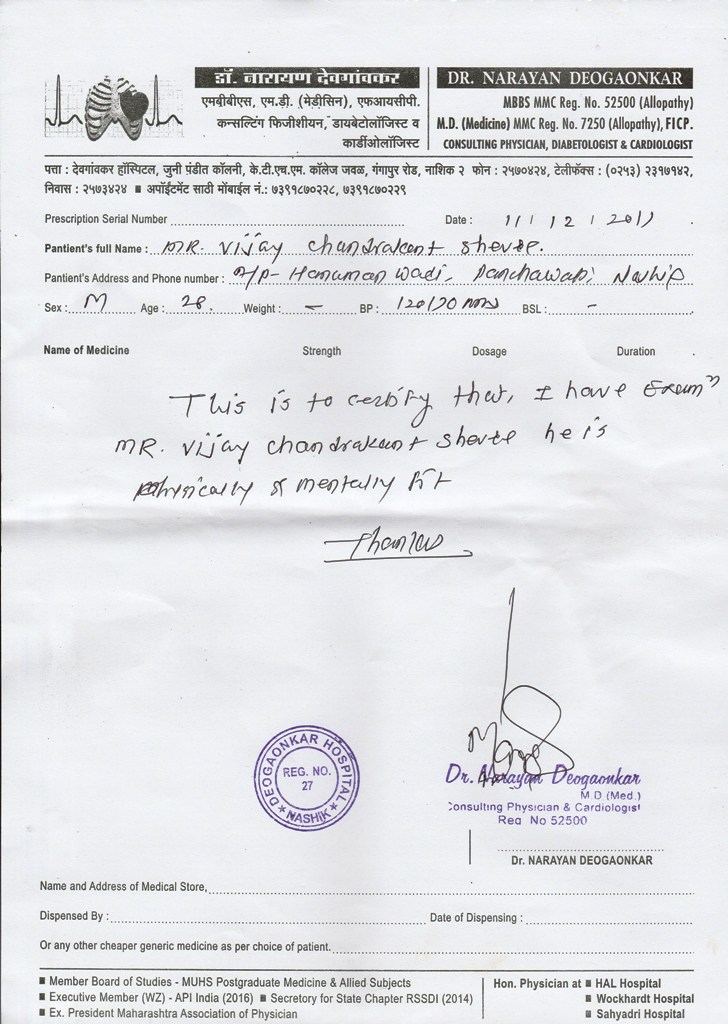 डॉ. नारायण देवगांवकर
एमबीबीएस, एम.डी. (मेडीसिन), एफआयसीपी.
कन्सल्टिंग फिजीशीयन, डायबेटोलॉजिस्ट व
कार्डीओलॉजिस्ट
DR. NARAYAN DEOGAONKAR
MBBS MMC Reg. No. 52500 (Allopathy)
M.D. (Medicine) MMC Reg. No. 7250 (Allopathy), FICP.
CONSULTING PHYSICIAN, DIABETOLOGIST & CARDIOLOGIST
पत्ता : देवगांवकर हॉस्पिटल, जुनी पंडीत कॉलनी, के.टी.एच.एम. कॉलेज जवळ, गंगापुर रोड, नाशिक २ फोन : २५७०४२४, टेलीफॅक्स : (०२५३) २३१७१४२,
निवास : २५७३४२४ ■ अपॉईंटमेंट साठी मोंबाईल नं.: ७३९१८७०२२८, ७३९१८७०२२९
Prescription Serial Number Date : 11/12/2017
Pantient's full Name : MR. Vijay Chandrakant Shevte.
Pantient's Address and Phone number : A/P- Hanuman Wadi, Panchawati, Nashik
Sex : M Age : 28. Weight : - BP : 120/70 mm BSL : -
Name of Medicine Strength Dosage Duration
This is to certify that, I have Exam
MR. Vijay Chandrakant Shevte he is
physically & mentally fit
Thanks
DEOGAONKAR HOSPITAL
REG. NO.
27
★ NASHIK ★
Dr. Narayan Deogaonkar
M D (Med.)
Consulting Physician & Cardiologist
Reg No 52500
Dr. NARAYAN DEOGAONKAR
Name and Address of Medical Store,
Dispensed By : Date of Dispensing :
Or any other cheaper generic medicine as per choice of patient.
■ Member Board of Studies - MUHS Postgraduate Medicine & Allied Subjects
■ Executive Member (WZ) - API India (2016) ■ Secretory for State Chapter RSSDI (2014)
■ Ex. President Maharashtra Association of Physician
Hon. Physician at ■ HAL Hospital
■ Wockhardt Hospital
■ Sahyadri Hospital